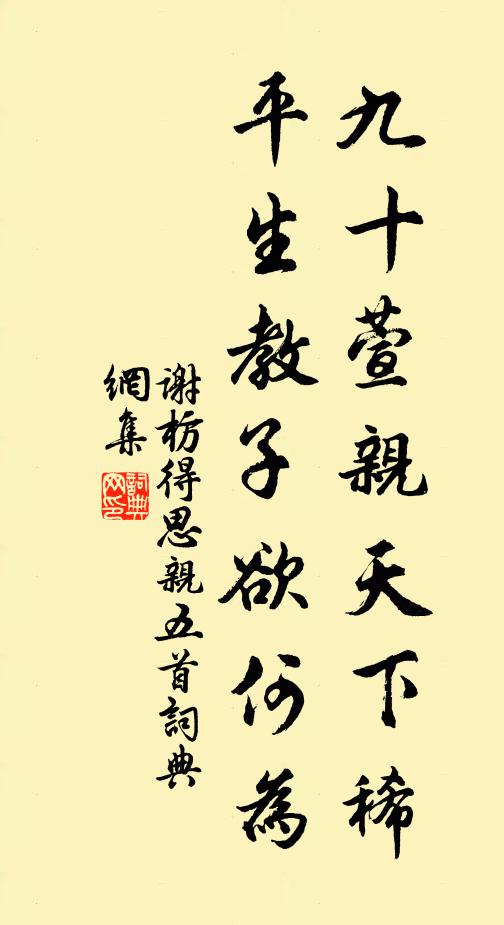 九十萱親天下稀
平生教子欲何為
謝枋得思親五首詞典
網集
詞典
网印